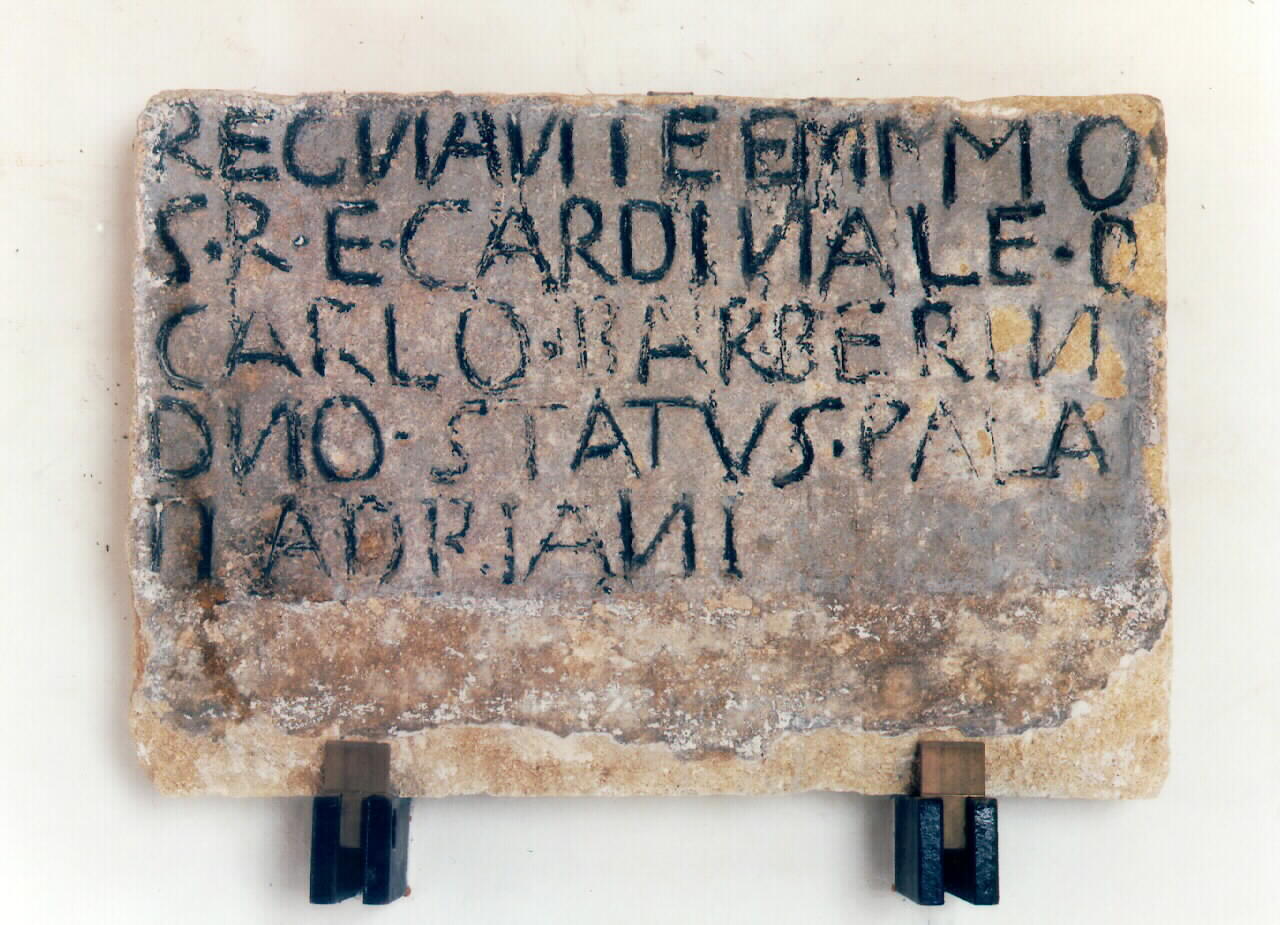 REGNANTE EMIMMO
S·R·E·CARDINALE·D
CARLO·BARBERIN
DNO·STATVS·PALA
TI ADRIANI